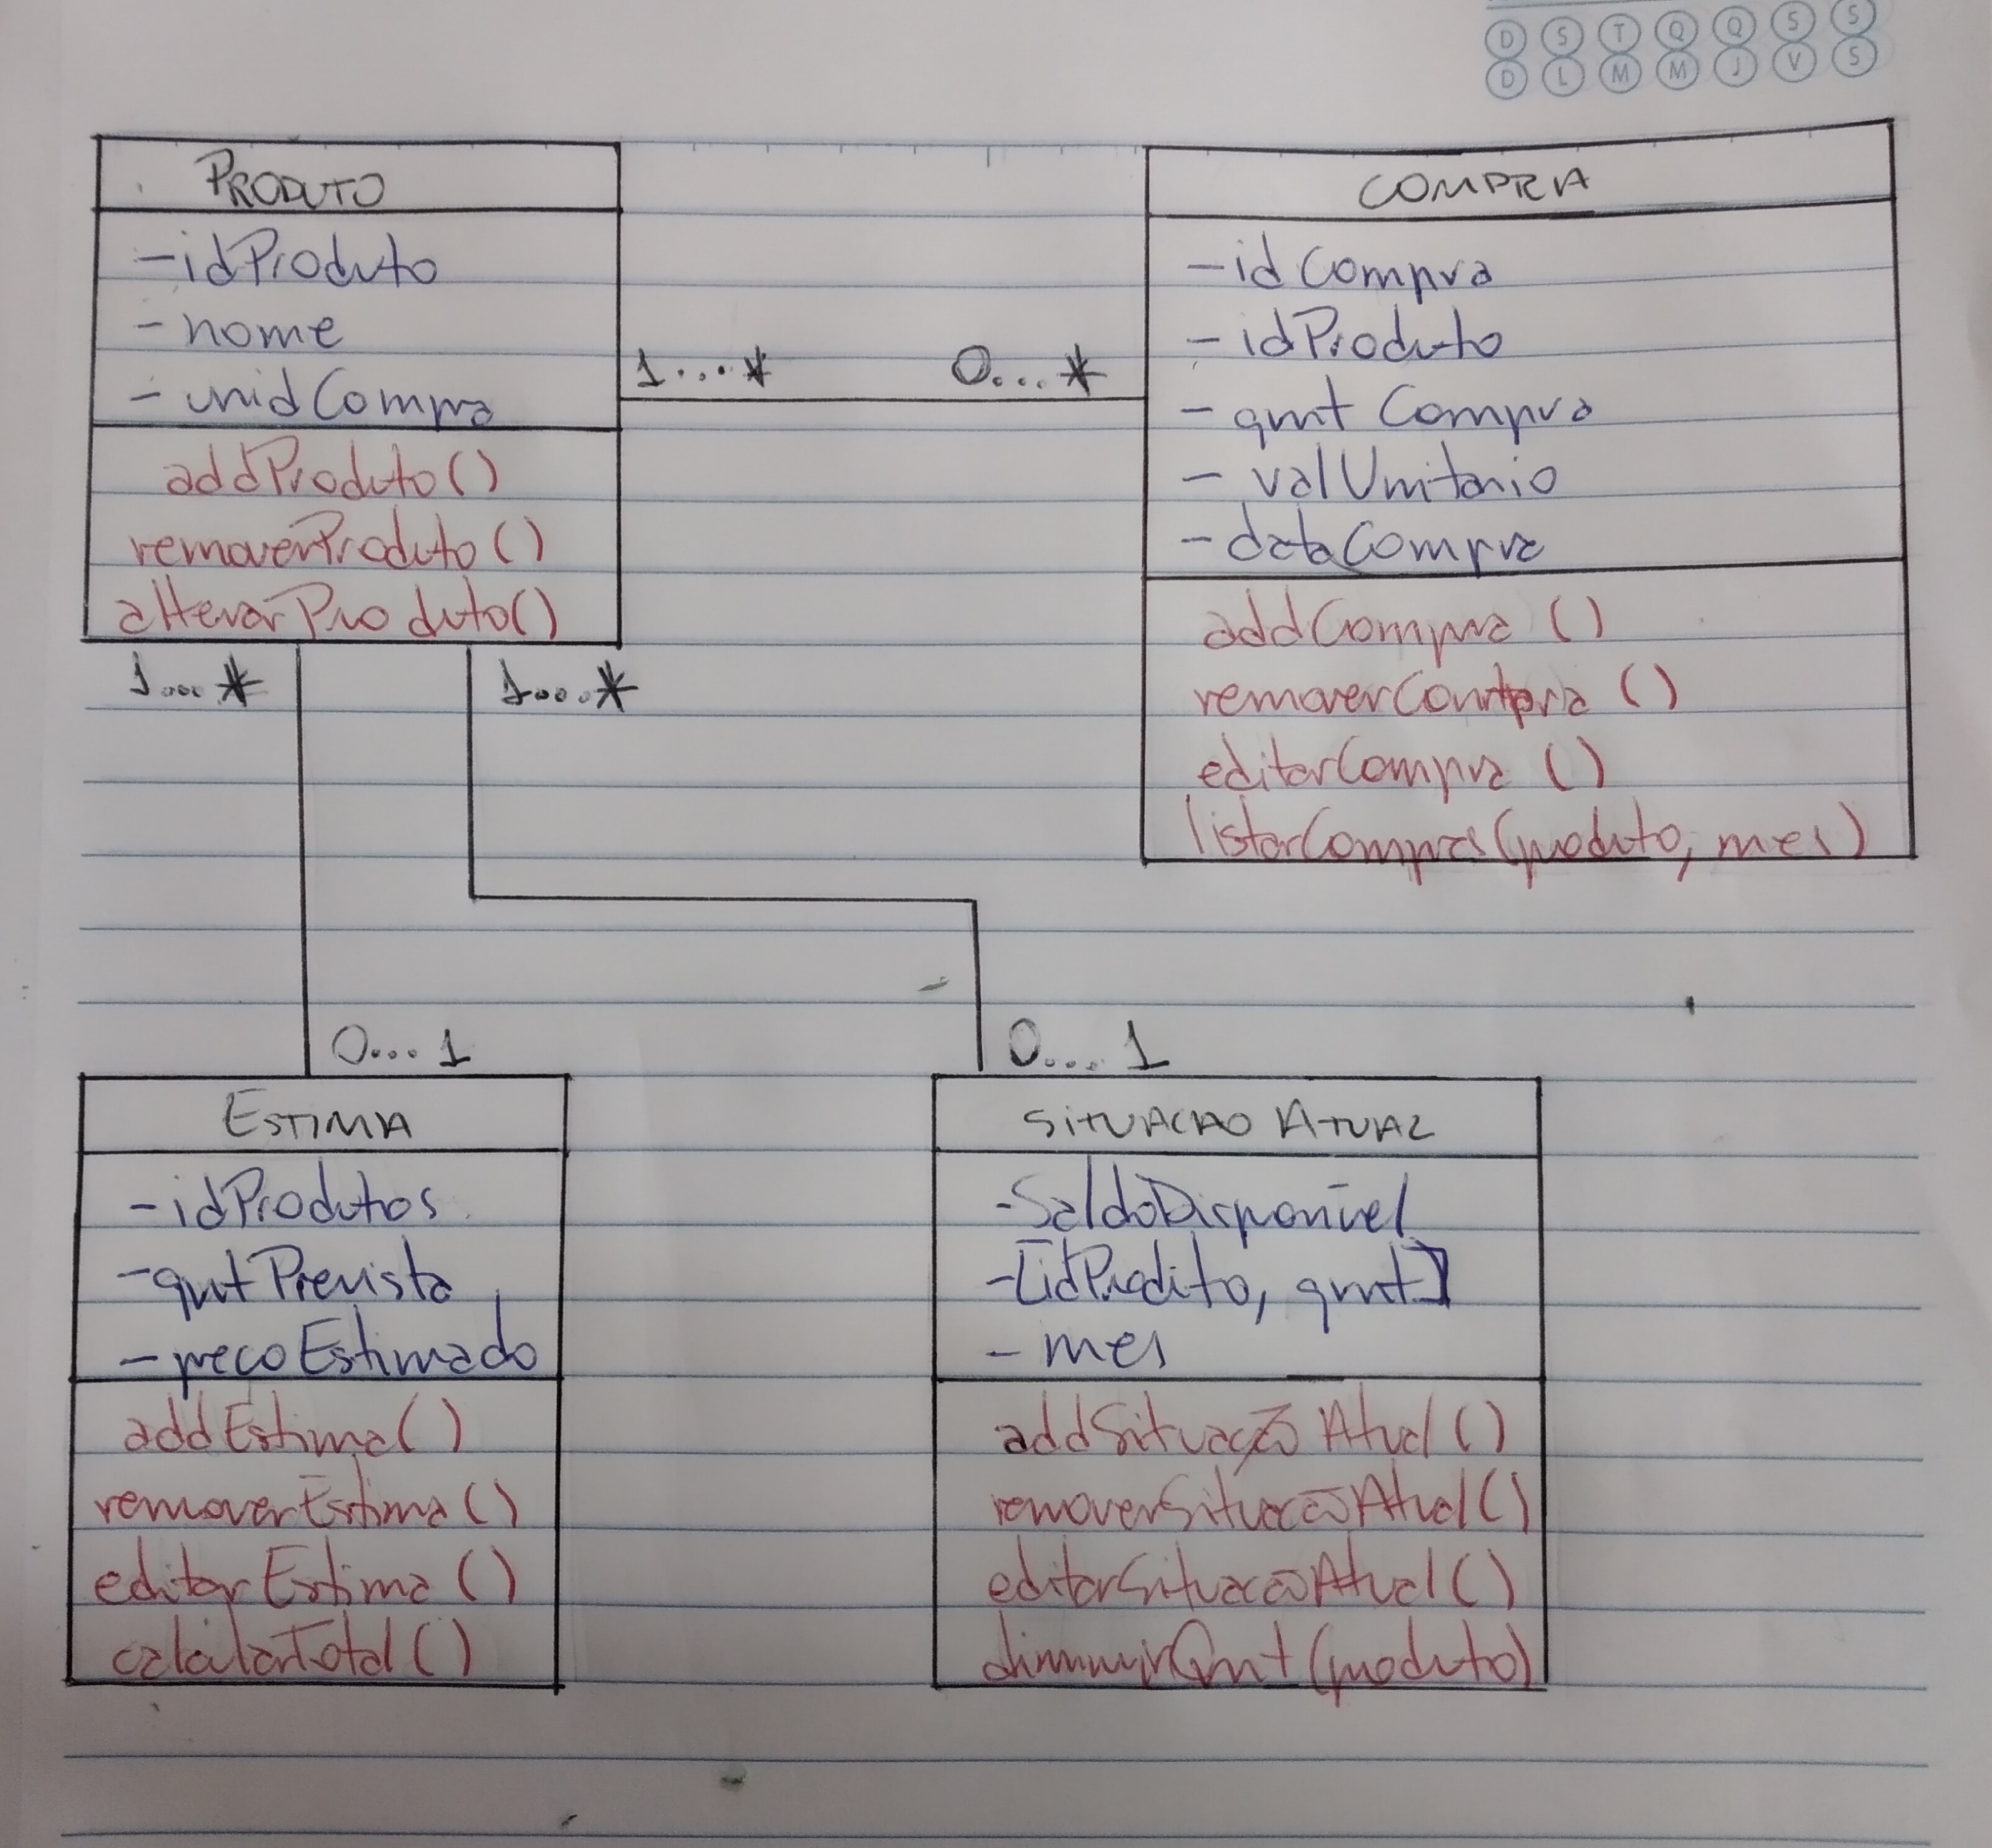 D S T Q Q S S
D L M M J V S
PRODUTO
-idProduto
- nome
- unidCompra
addProduto()
removerProduto()
alterarProduto()
1...*
0...*
COMPRA
-idCompra
- idProduto
- qnt Compra
- valUnitario
- dataCompra
addCompra ()
removerCompra ()
editarCompra ()
listarCompras(produto, mes)
1...*
1...*
0...1
0...1
ESTIMA
-idProdutos
-qntPrevista
-precoEstimado
addEstima()
removerEstima()
editarEstima ()
calcularTotal()
SITUACAO ATUAL
-SaldoDisponível
-[idProdito, qnt]
- mes
addSituação Atual()
removerSituaçãoAtual()
editarSituaçãoAtual()
diminuirQnt(produto)